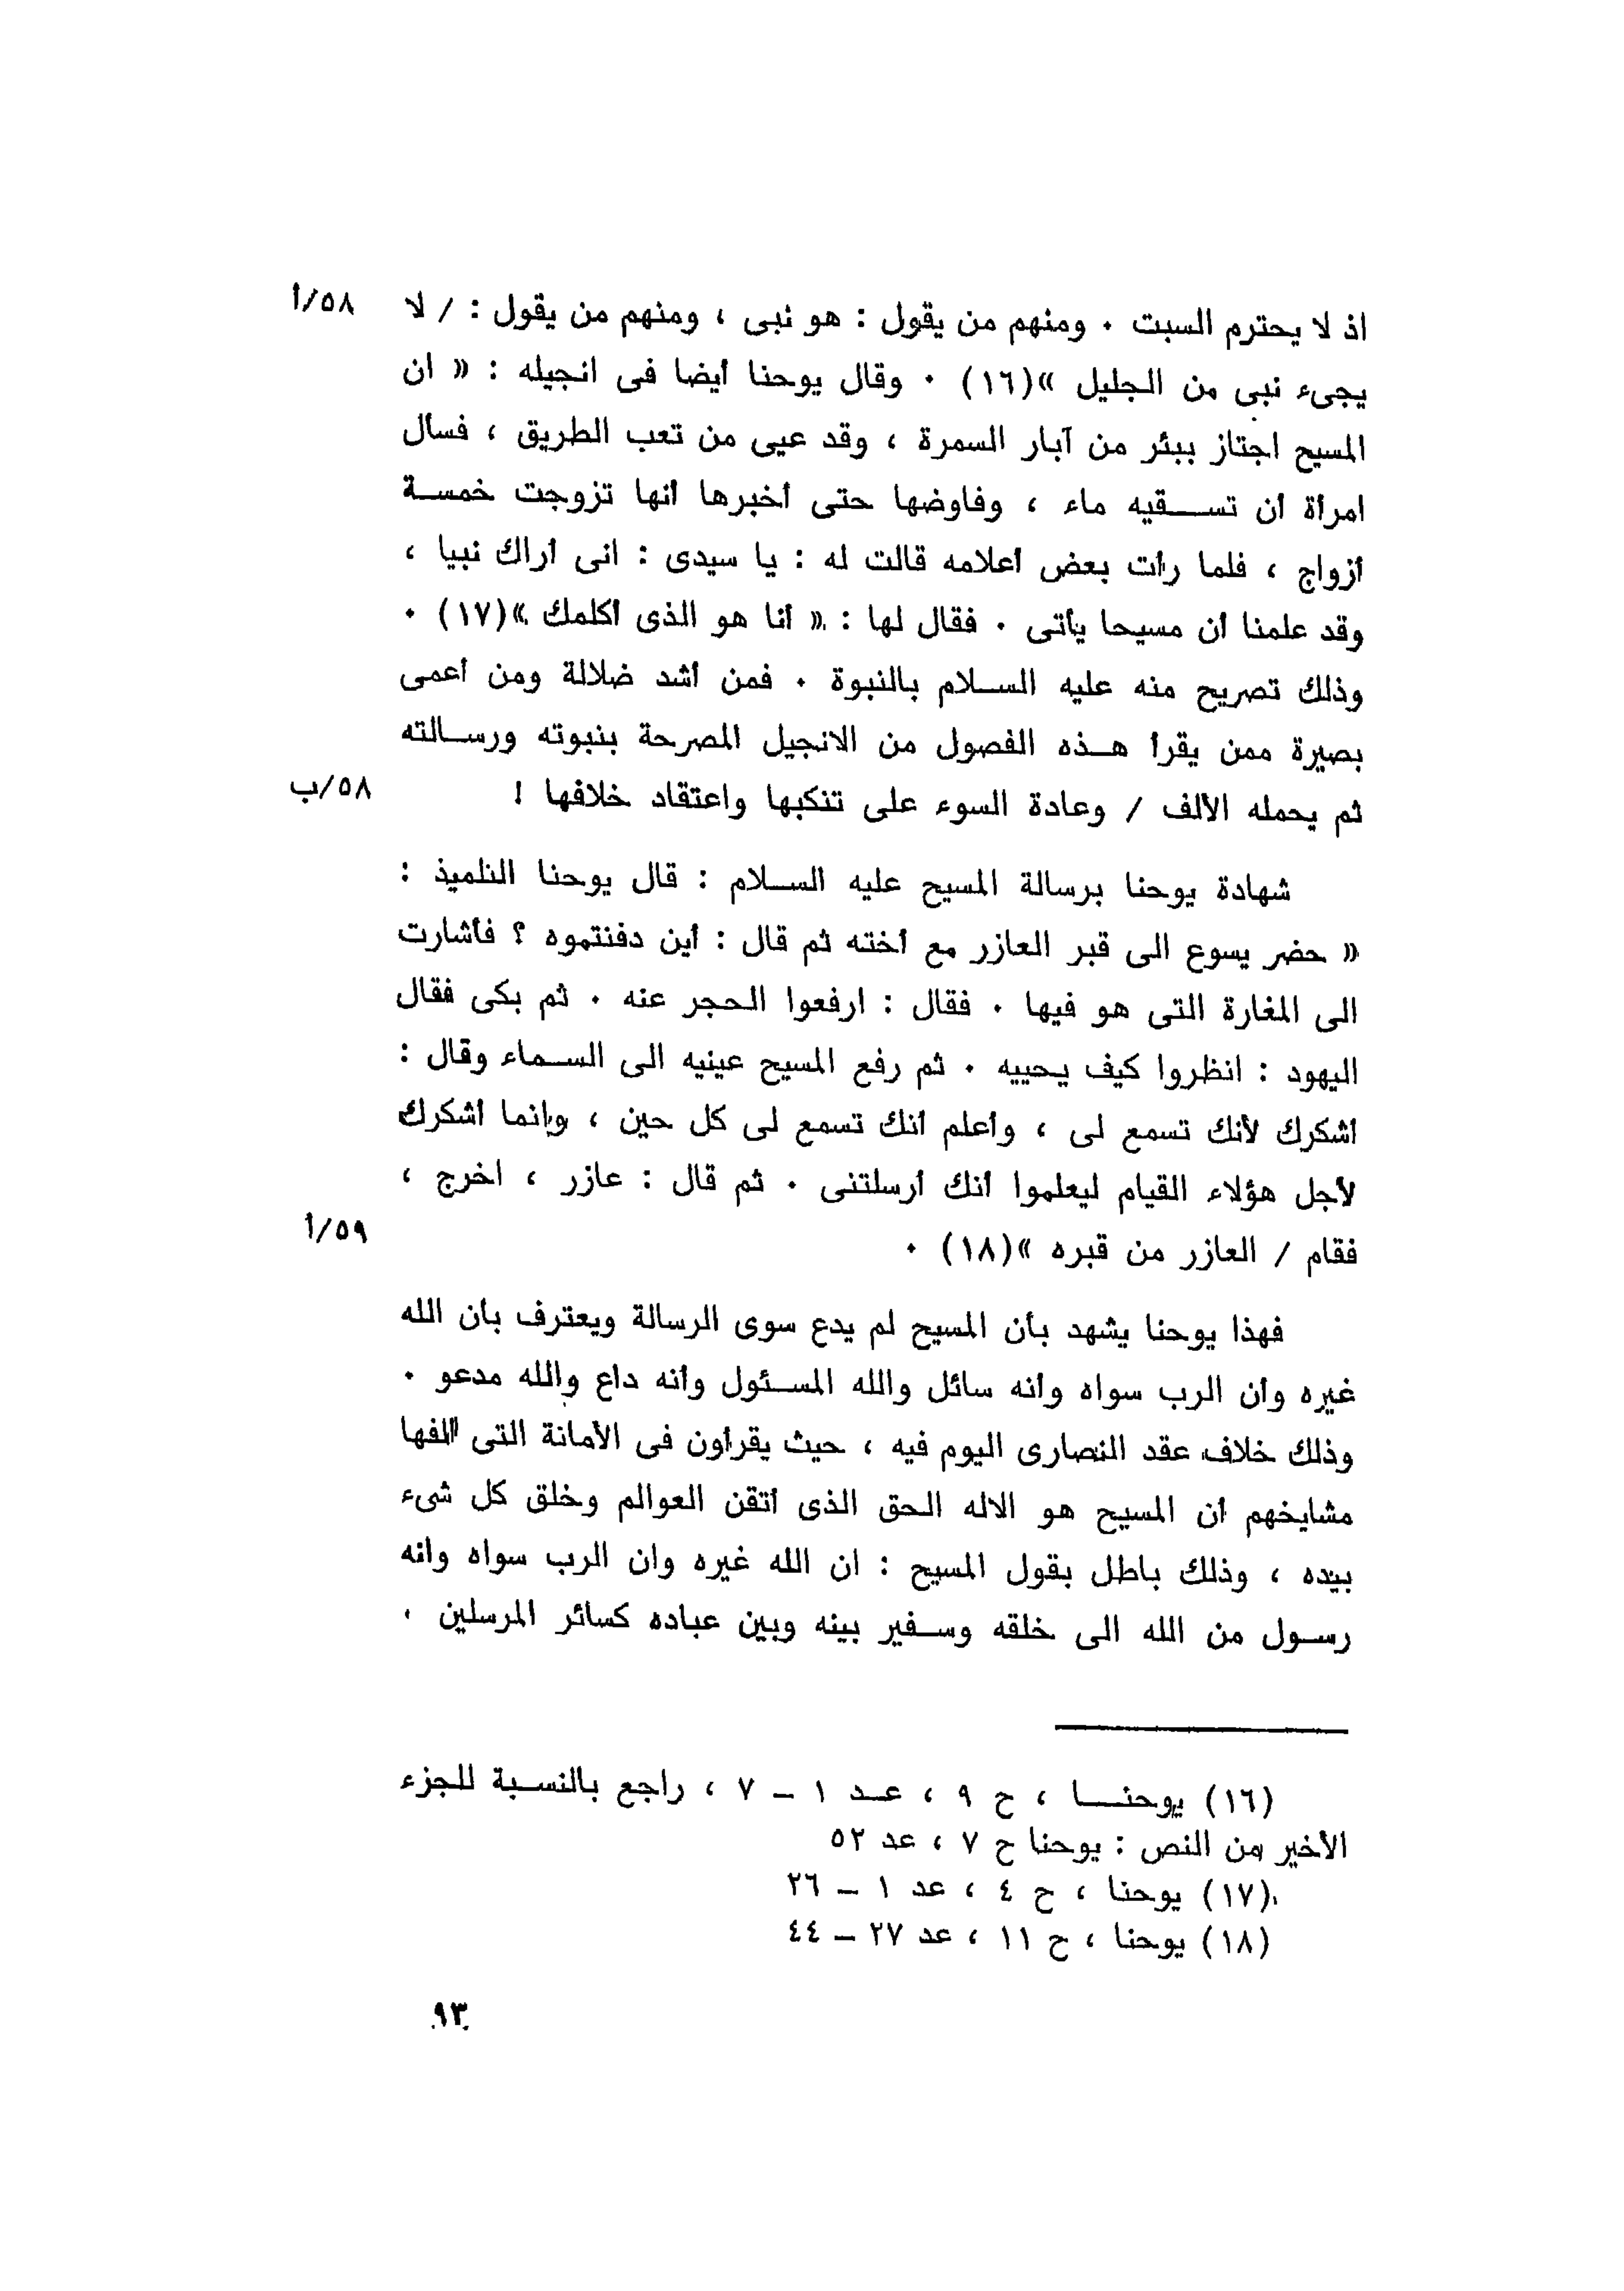 اذ لا يحترم السبت ٠ ومنهم من يقول : هو نبى ، ومنهم من يقول : / لا ٥٨/أ
يجىء نبى من الجليل »(١٦) ٠ وقال يوحنا أيضا فى انجيله : « ان
المسيح اجتاز ببئر من آبار السمرة ، وقد عيى من تعب الطريق ، فسأل
امرأة أن تســـقيه ماء ، وفاوضها حتى أخبرها أنها تزوجت خمســة
أزواج ، فلما رأت بعض أعلامه قالت له : يا سيدى : انى أراك نبيا ،
وقد علمنا أن مسيحا يأتى ٠ فقال لها : « أنا هو الذى أكلمك »(١٧) ٠
وذلك تصريح منه عليه الســلام بالنبوة ٠ فمن أشد ضلالة ومن أعمى
بصيرة ممن يقرأ هــذه الفصول من الانجيل المصرحة بنبوته ورســالته
ثم يحمله الألف / وعادة السوء على تنكبها واعتقاد خلافها ! ٥٨/ب
شهادة يوحنا برسالة المسيح عليه الســلام : قال يوحنا التلميذ :
« حضر يسوع الى قبر العازر مع أخته ثم قال : أين دفنتموه ؟ فأشارت
الى المغارة التى هو فيها ٠ فقال : ارفعوا الحجر عنه ٠ ثم بكى فقال
اليهود : انظروا كيف يحييه ٠ ثم رفع المسيح عينيه الى الســماء وقال :
أشكرك لأنك تسمع لى ، وأعلم أنك تسمع لى كل حين ، وانما أشكرك
لأجل هؤلاء القيام ليعلموا أنك أرسلتنى ٠ ثم قال : عازر ، اخرج ،
فقام / العازر من قبره »(١٨) ٠ ٥٩/أ
فهذا يوحنا يشهد بأن المسيح لم يدع سوى الرسالة ويعترف بأن الله
غيره وأن الرب سواه وأنه سائل والله المســئول وأنه داع والله مدعو ٠
وذلك خلاف عقد النصارى اليوم فيه ، حيث يقرأون فى الأمانة التى ألفها
مشايخهم أن المسيح هو الاله الحق الذى أتقن العوالم وخلق كل شىء
بيده ، وذلك باطل بقول المسيح : ان الله غيره وان الرب سواه وأنه
رســول من الله الى خلقه وســفير بينه وبين عباده كسائر المرسلين ٠
(١٦) يوحنـــا ، ح ٩ ، عــد ١ – ٧ ، راجع بالنســبة للجزء
الأخير من النص : يوحنا ح ٧ ، عد ٥٢
(١٧) يوحنا ، ح ٤ ، عد ١ – ٢٦
(١٨) يوحنا ، ح ١١ ، عد ٢٧ – ٤٤
٩٣